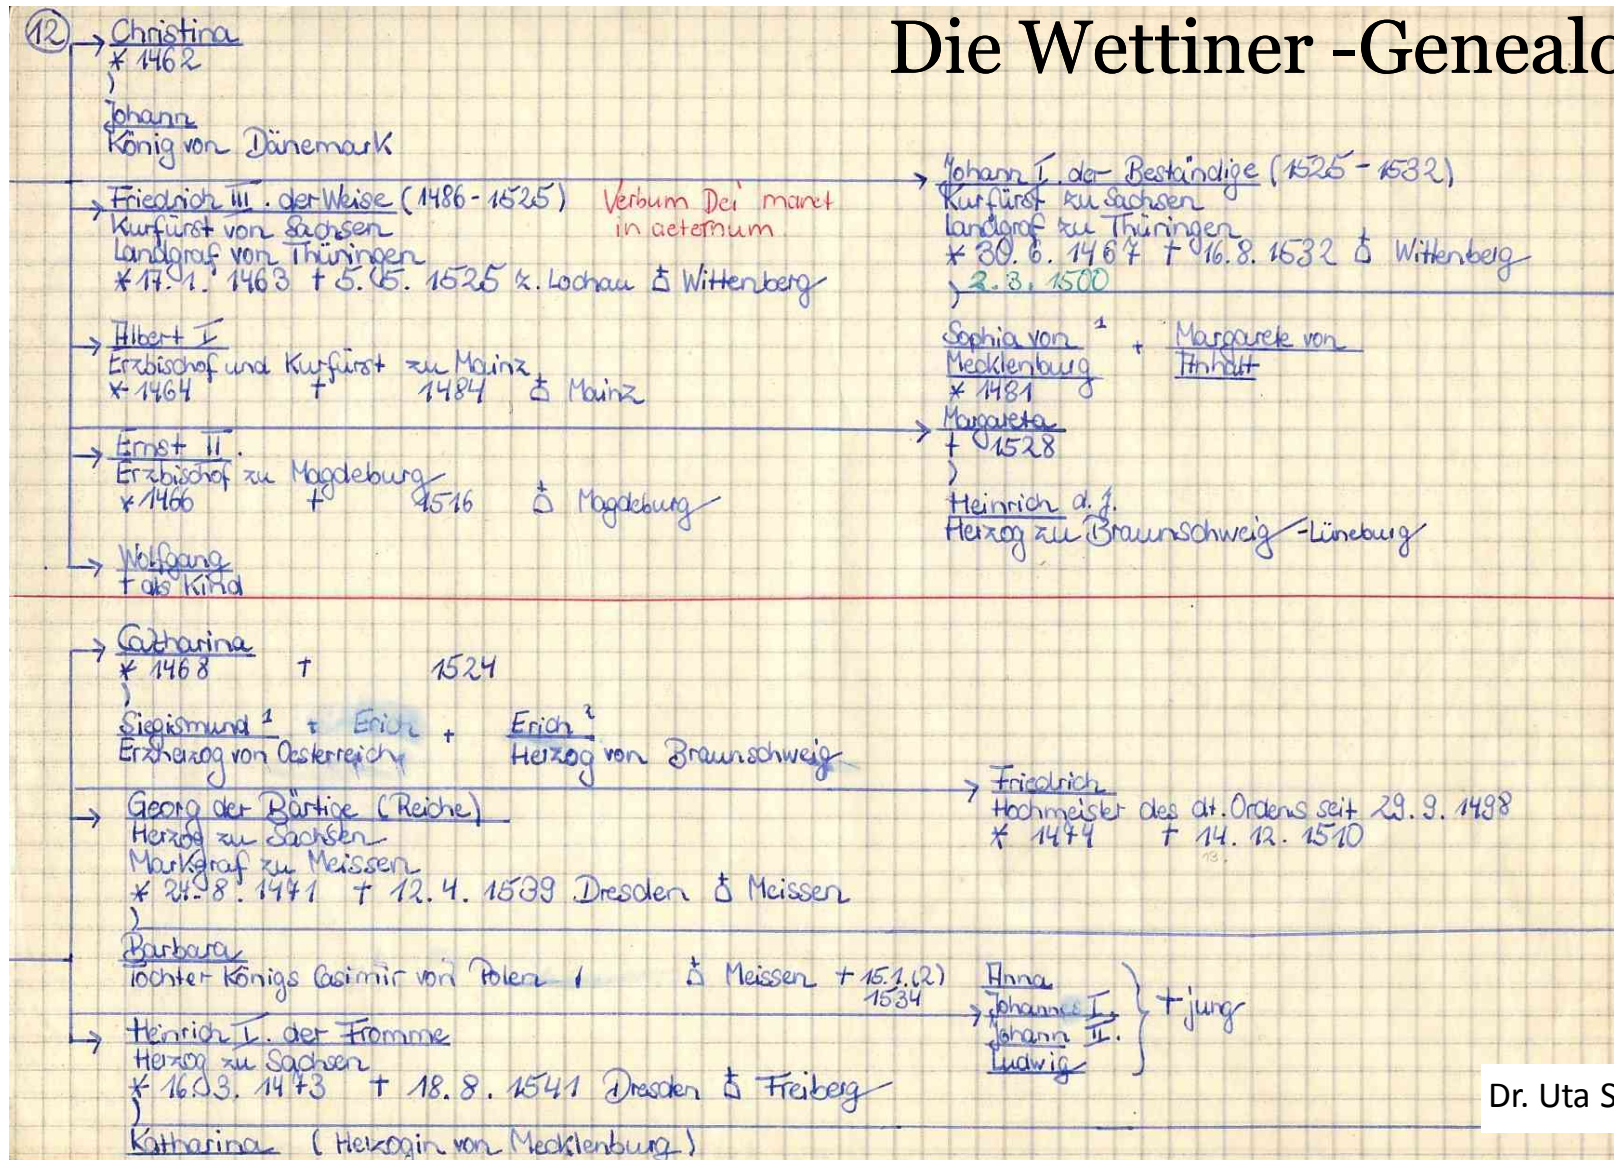 12
Die Wettiner -Genealo
Christina
* 1462
)
Johann
König von Dänemark
Friedrich III. der Weise (1486 - 1525)
Kurfürst von Sachsen
Landgraf von Thüringen
* 17. 1. 1463 † 5. 5. 1525 z. Lochau Wittenberg
Verbum Dei manet
in aeternum
Albert I
Erzbischof und Kurfürst zu Mainz
* 1464 † 1484 Mainz
Ernst II.
Erzbischof zu Magdeburg
* 1466 † 1516 Magdeburg
Wolfgang
† als Kind
Johann I. der Beständige (1525 - 1532)
Kurfürst zu Sachsen
Landgraf zu Thüringen
* 30. 6. 1467 † 16. 8. 1532 Wittenberg
) 2. 3. 1500
Sophia von 1 + Margarete von
Mecklenburg Anhalt
* 1481
Margareta
† 1528
)
Heinrich d. J.
Herzog zu Braunschweig-Lüneburg
Catharina
* 1468 † 1524
)
Siegismund 1 + Erich + Erich 2
Erzherzog von Oesterreich Herzog von Braunschweig
Georg der Bärtige (Reiche)
Herzog zu Sachsen
Markgraf zu Meissen
* 27. 8. 1471 † 12. 4. 1539 Dresden Meissen
)
Barbara
Tochter Königs Casimir von Polen Meissen † 15.1.(2)
1534
Heinrich I. der Fromme
Herzog zu Sachsen
* 16. 3. 1473 † 18. 8. 1541 Dresden Freiberg
)
Katharina (Herzogin von Mecklenburg)
Friedrich
Hochmeister des dt. Ordens seit 29. 9. 1498
* 1474 † 14. 12. 1510
13.
Anna
Johannes I.
Johann II.
Ludwig
† jung
Dr. Uta S